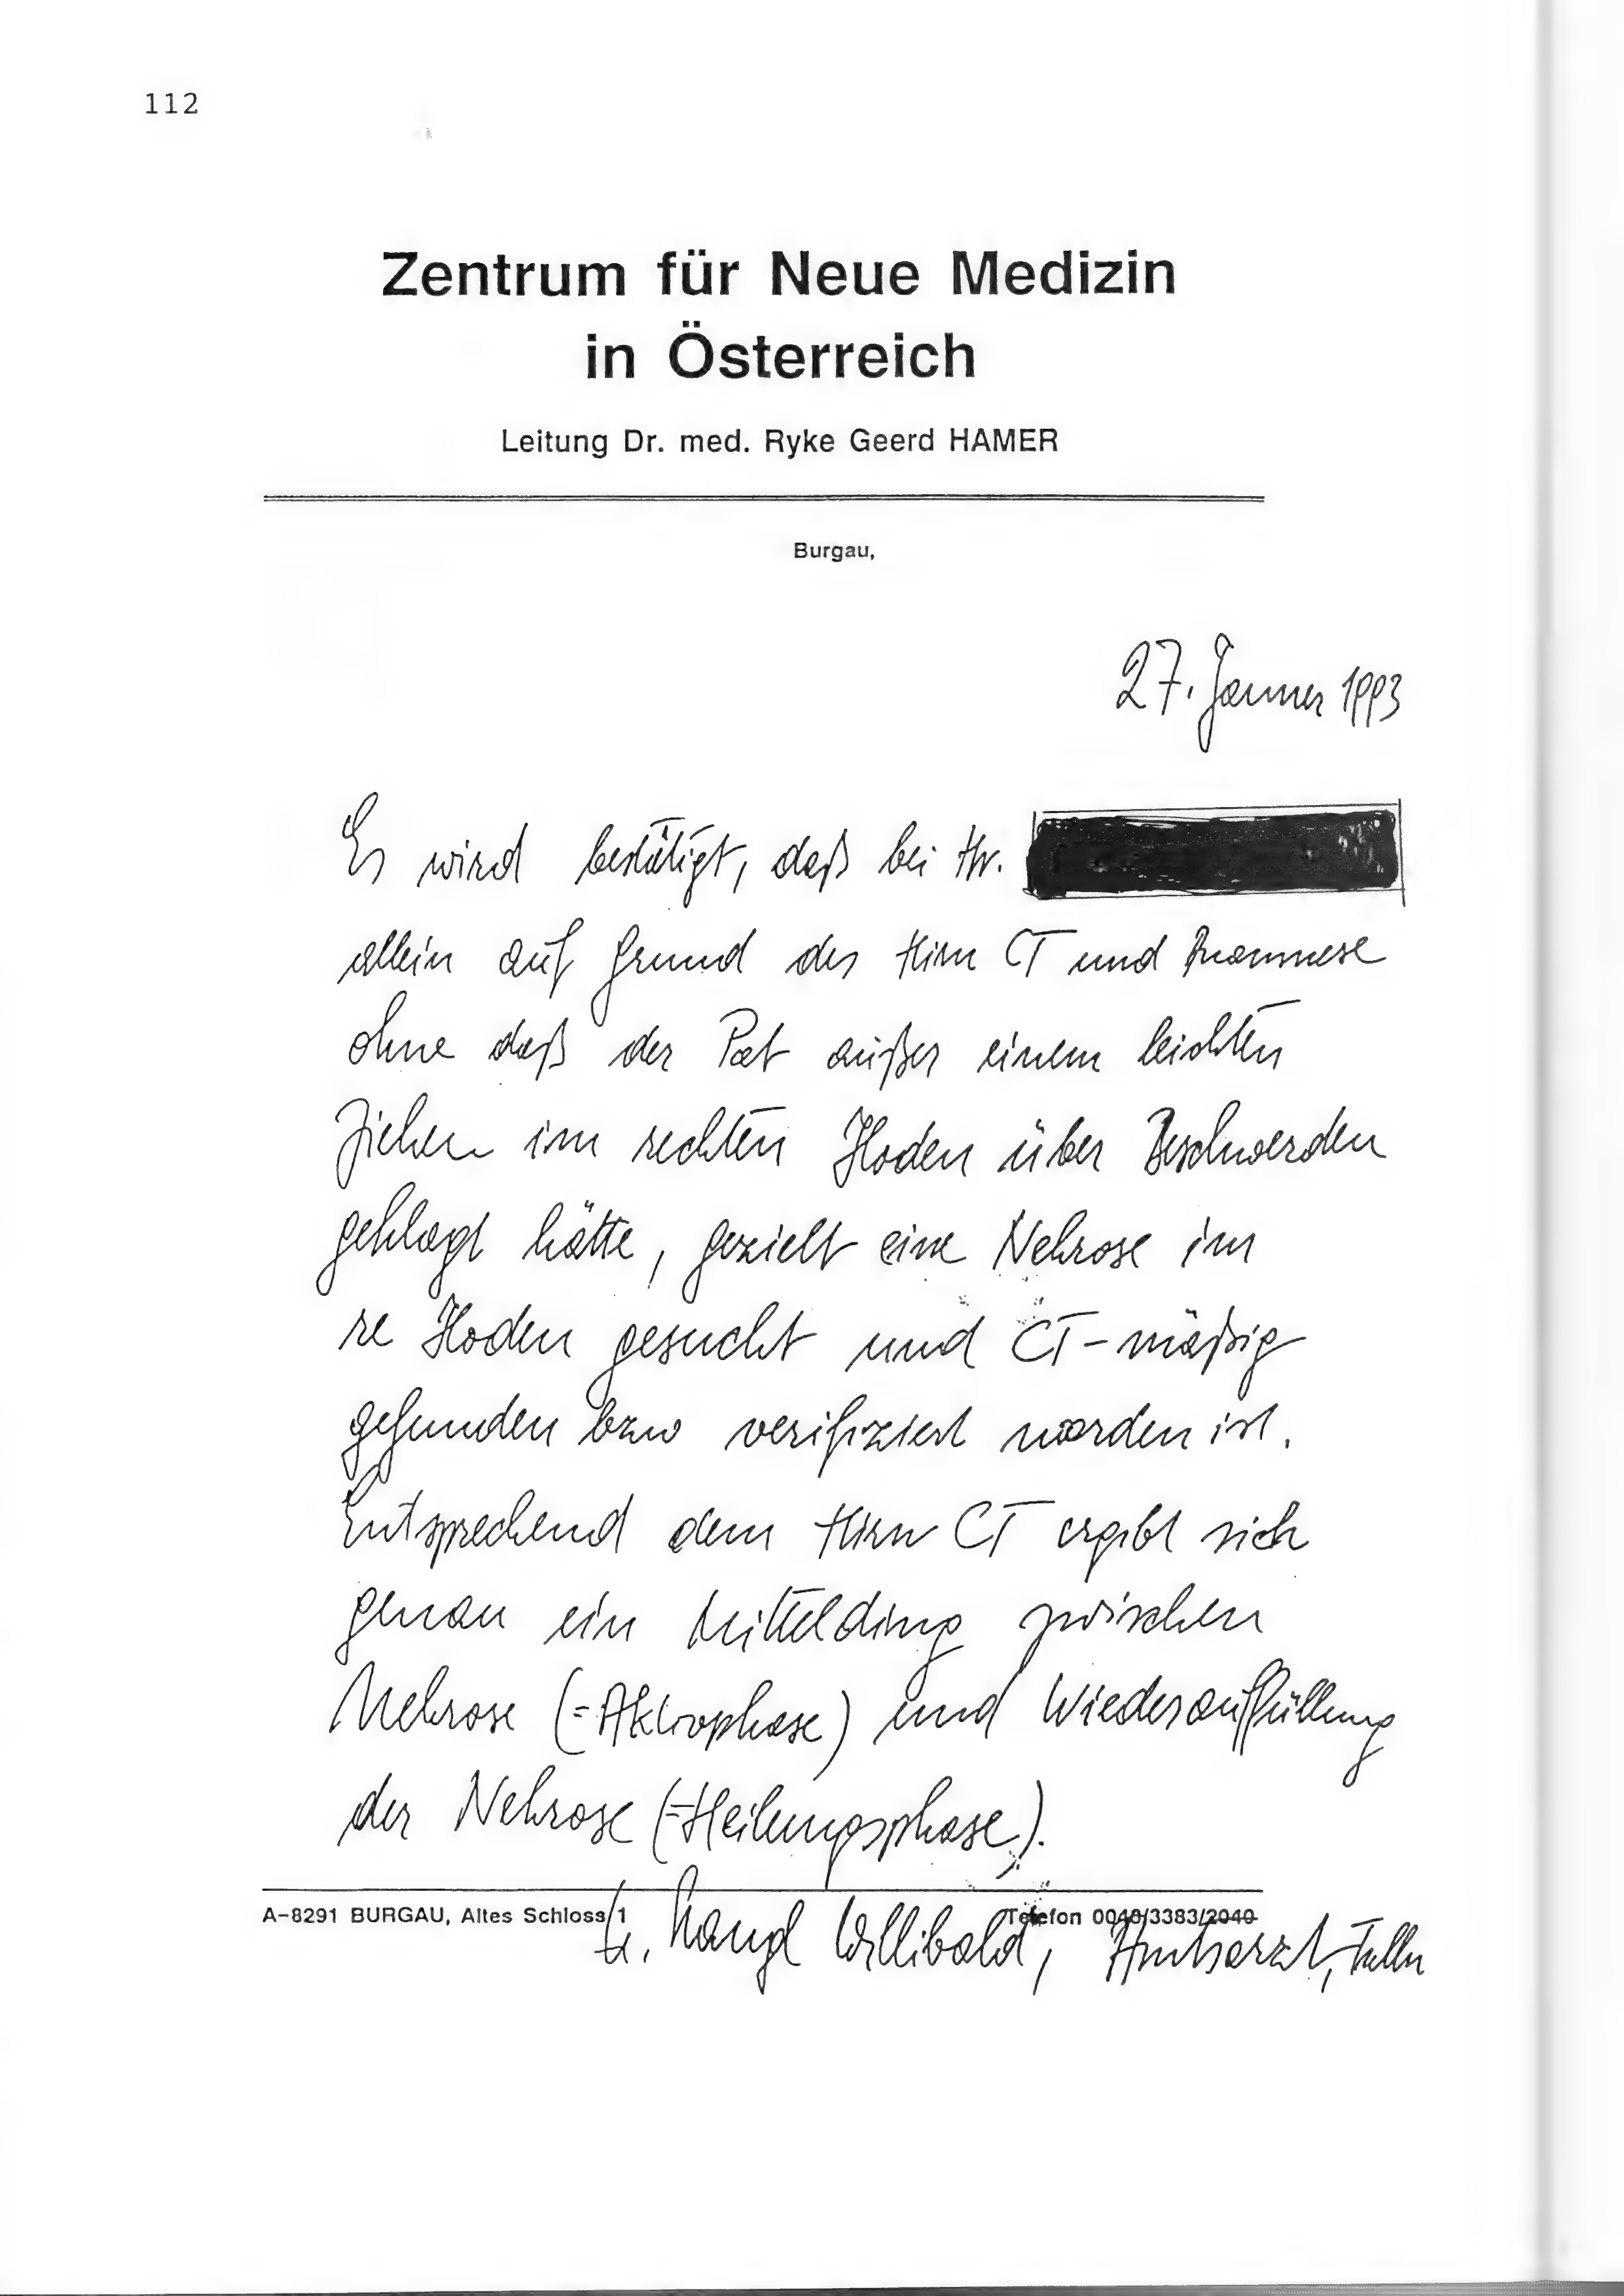 112
Zentrum für Neue Medizin
in Österreich
Leitung Dr. med. Ryke Geerd HAMER
Burgau,
27. Jänner 1993
Es wird bestätigt, daß bei Hr.
allein auf Grund des Hirn CT und Anamnese
ohne daß der Pat außer einem leichten
Ziehen im rechten Hoden über Beschwerden
geklagt hätte, gezielt eine Nekrose im
re Hoden gesucht und CT-mäßig
gefunden bzw verifiziert worden ist.
Entsprechend dem Hirn CT ergibt sich
genau ein Mittelding zwischen
Nekrose (=Aktivphase) und Wiederauffüllung
der Nekrose (=Heilungsphase).
A-8291 BURGAU, Altes Schloss 1 Telefon 0043/3383/2040
Willibald, Amtsarzt, Tulln